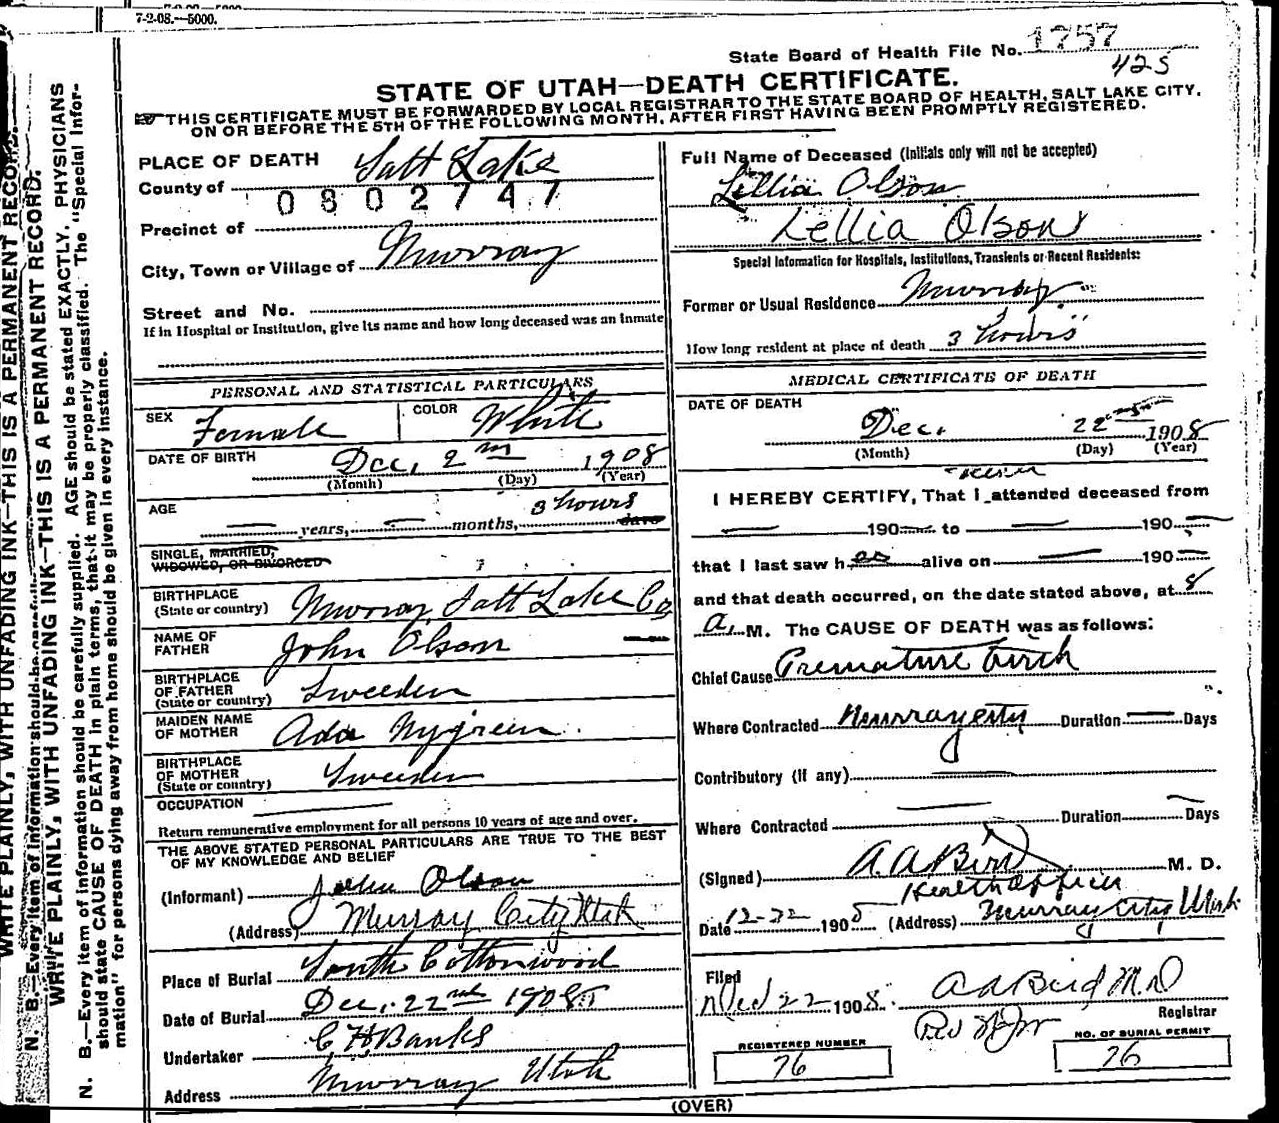 7-2-08.—5000.
State Board of Health File No. 1757
425
STATE OF UTAH—DEATH CERTIFICATE.
THIS CERTIFICATE MUST BE FORWARDED BY LOCAL REGISTRAR TO THE STATE BOARD OF HEALTH, SALT LAKE CITY,
ON OR BEFORE THE 5TH OF THE FOLLOWING MONTH, AFTER FIRST HAVING BEEN PROMPTLY REGISTERED.
PLACE OF DEATH
County of Salt Lake
0802747
Precinct of
City, Town or Village of Murray
Street and No.
If in Hospital or Institution, give its name and how long deceased was an inmate
Full Name of Deceased (Initials only will not be accepted)
Lillia Olson
Lellia Olson
Special Information for Hospitals, Institutions, Transients or Recent Residents:
Former or Usual Residence Murray
How long resident at place of death 3 hours
PERSONAL AND STATISTICAL PARTICULARS
SEX Female COLOR White
DATE OF BIRTH Dec. 2 1908
(Month) (Day) (Year)
AGE years, months, 3 hours days
SINGLE, MARRIED,
WIDOWED, OR DIVORCED
BIRTHPLACE
(State or country) Murray, Salt Lake Co
NAME OF
FATHER John Olson
BIRTHPLACE
OF FATHER
(State or country) Sweeden
MAIDEN NAME
OF MOTHER Ada Nygreen
BIRTHPLACE
OF MOTHER
(State or country) Sweeden
OCCUPATION
Return remunerative employment for all persons 10 years of age and over.
THE ABOVE STATED PERSONAL PARTICULARS ARE TRUE TO THE BEST
OF MY KNOWLEDGE AND BELIEF
(Informant) John Olson
(Address) Murray City Utah
Place of Burial South Cottonwood
Date of Burial Dec. 22nd 1908
Undertaker C H Banks
Address Murray Utah
MEDICAL CERTIFICATE OF DEATH
DATE OF DEATH
Dec. 22 1908
(Month) (Day) (Year)
I HEREBY CERTIFY, That I attended deceased from
190 to 190
that I last saw h alive on 190
and that death occurred, on the date stated above, at 8
a. M. The CAUSE OF DEATH was as follows:
Chief Cause Premature birth
Where Contracted Murray city Duration Days
Contributory (if any)
Where Contracted Duration Days
(Signed) A. A. Bird M. D.
Health Officer
Date 12-22 1908 (Address) Murray City Utah
Filed
Dec 22 1908. A A Bird M D
Registrar
REGISTERED NUMBER
76
NO. OF BURIAL PERMIT
76
(OVER)
WRITE PLAINLY, WITH UNFADING INK—THIS IS A PERMANENT RECORD.
N. B.—Every item of information should be
WRITE PLAINLY, WITH UNFADING INK—THIS IS A PERMANENT RECORD.
N. B.—Every item of information should be carefully supplied. AGE should be stated EXACTLY. PHYSICIANS
should state CAUSE OF DEATH in plain terms, that it may be properly classified. The "Special Infor-
mation" for persons dying away from home should be given in every instance.